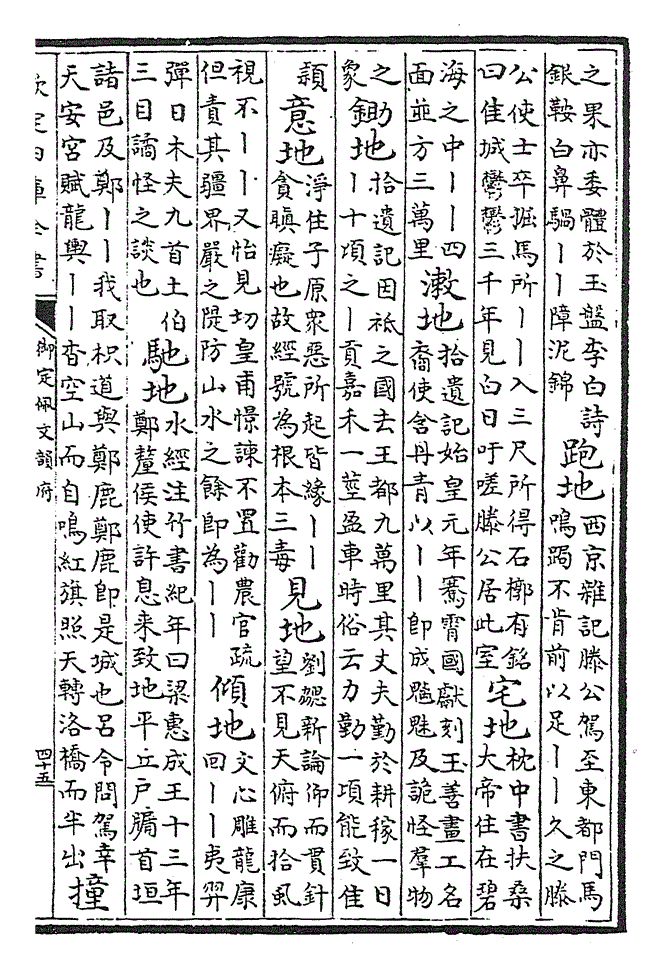 之果亦委體於玉盤李白詩
銀鞍白鼻騧丨丨障泥錦
跑地
西京雜記滕公駕至東都門馬
鳴跼不肯前以足丨丨久之滕
公使士卒掘馬所丨丨入三尺所得石槨有銘
曰佳城鬱鬱三千年見白日吁嗟滕公居此室
宅地
枕中書扶桑
大帝住在碧
海之中丨丨四
面並方三萬里
潄地
拾遺記始皇元年騫霄國獻刻玉善畫工名
裔使含丹青以丨丨即成魑魅及詭怪羣物
之
象
鋤地
拾遺記因祗之國去王都九萬里其丈夫勤於耕稼一日
丨十頃之丨貢嘉禾一莖盈車時俗云力勤一項能致佳
穎
意地
淨住子原衆惡所起皆緣丨丨
貪瞋癡也故經號為根本三毒
見地
劉勰新論仰而貫針
望不見天俯而拾虱
視不丨丨又怡見切皇甫憬諫不置勸農官疏
但責其疆界嚴之隄防山水之餘即為丨丨
傾地
文心雕龍康
回丨丨夷羿
彈日木夫九首土伯
三目譎怪之談也
馳地
水經注竹書紀年曰梁惠成王十三年
鄭釐侯使許息来致地平丘戶牖首垣
諸邑及鄭丨丨我取枳道與鄭鹿鄭鹿即是城也呂令問駕幸
天安宮賦龍輿丨丨杳空山而自鳴紅旗照天轉洛橋而半出
撞
欽定四庫全書
御定佩文韻府
四十五